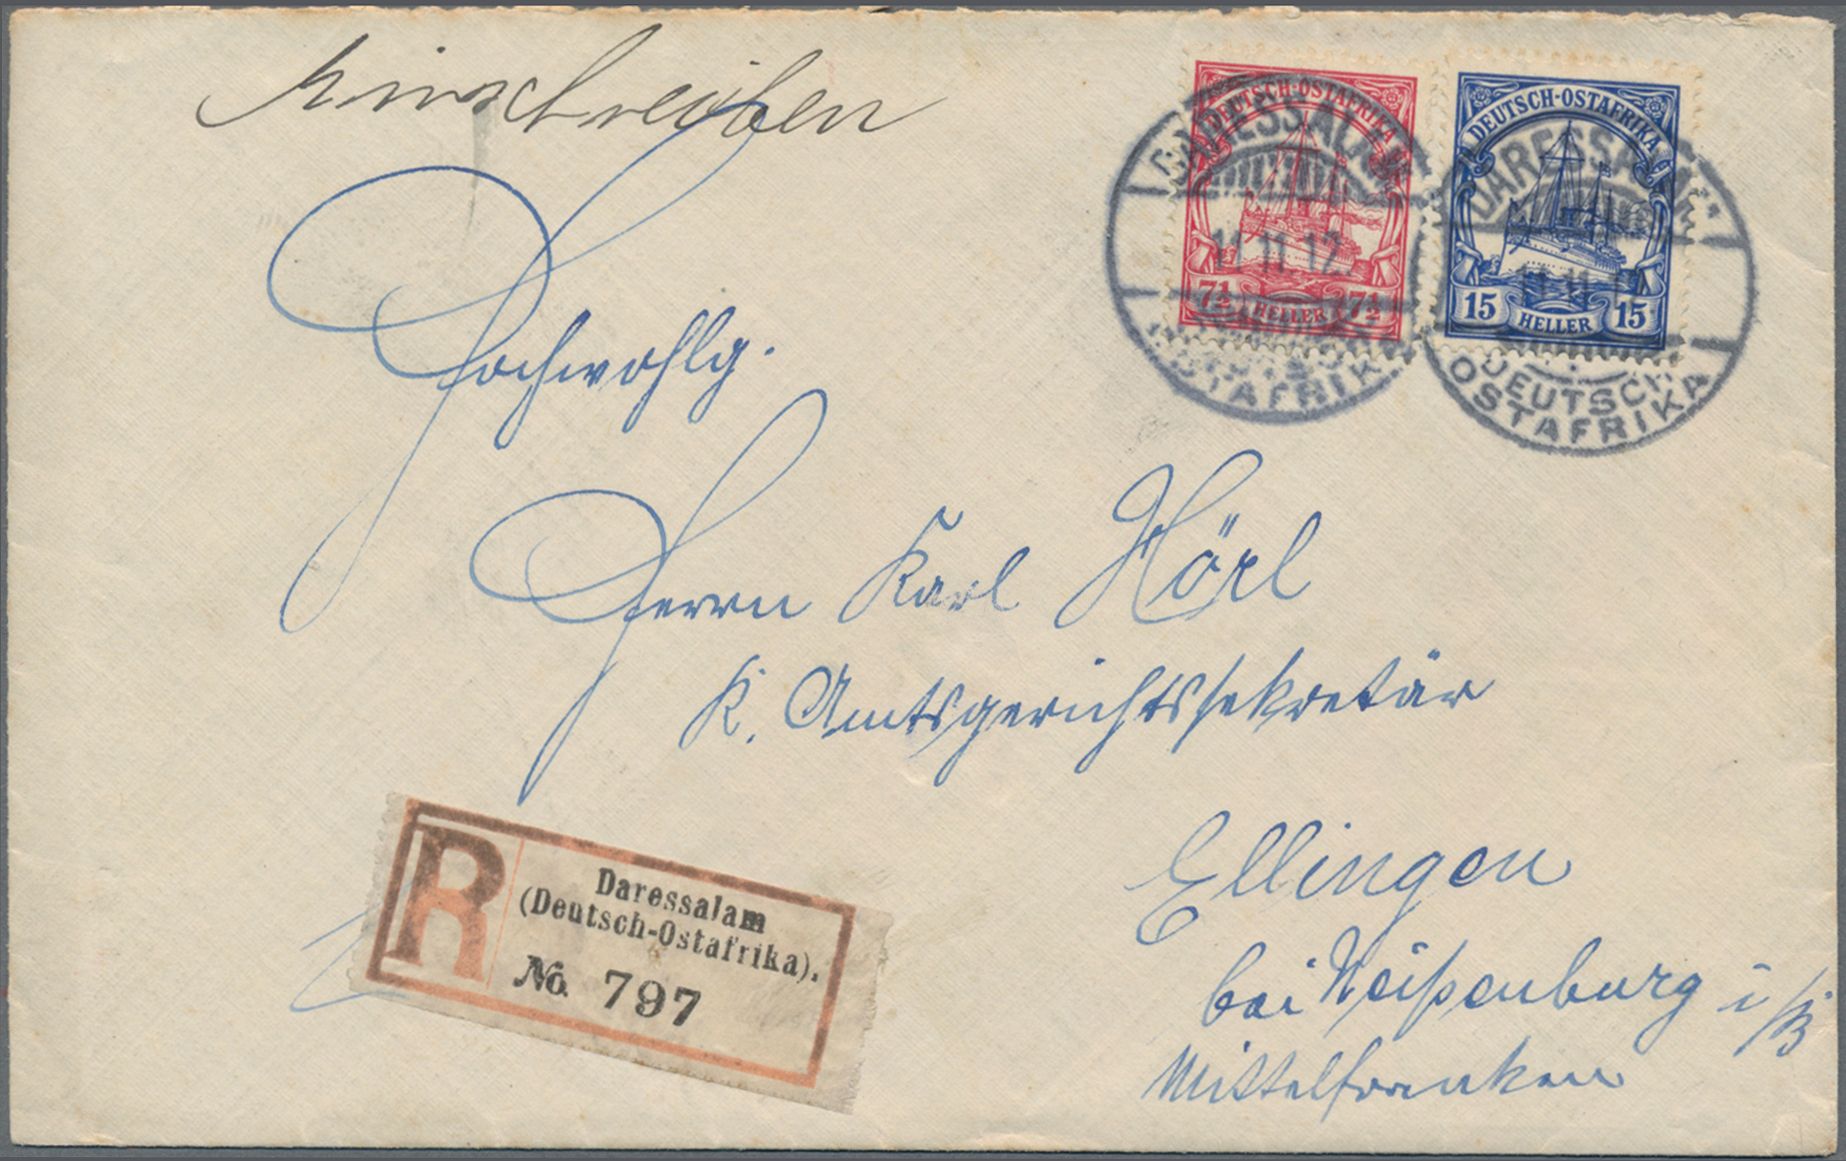 Einschreiben
DEUTSCH-OSTAFRIKA
7½ HELLER 7½
DEUTSCH-OSTAFRIKA
15 HELLER 15
DARESSALAM
11.11.12.
OSTAFRIKA
DARESSALAM
11.11.12
DEUTSCH
OSTAFRIKA
Hochwohlg.
Herrn Karl Hörl
K. Amtsgerichtssekretär
R
Daressalam
(Deutsch-Ostafrika).
No. 797
Ellingen
bei Weißenburg i/B
Mittelfranken